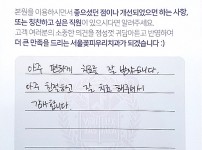 본원을 이용하시면서 좋으셨던 점이나 개선되었으면 하는 사항,
또는 칭찬하고 싶은 직원이 있으시다면 알려주세요.
고객 여러분의 소중한 의견을 정성껏 귀담아듣고 반영하여
더 큰 만족을 드리는 서울꽃피우리치과가 되겠습니다 :)
아주 편하게 치료를 잘 받았습니다.
아주 친절하고 잘 치료 해주셔서
감사합니다.